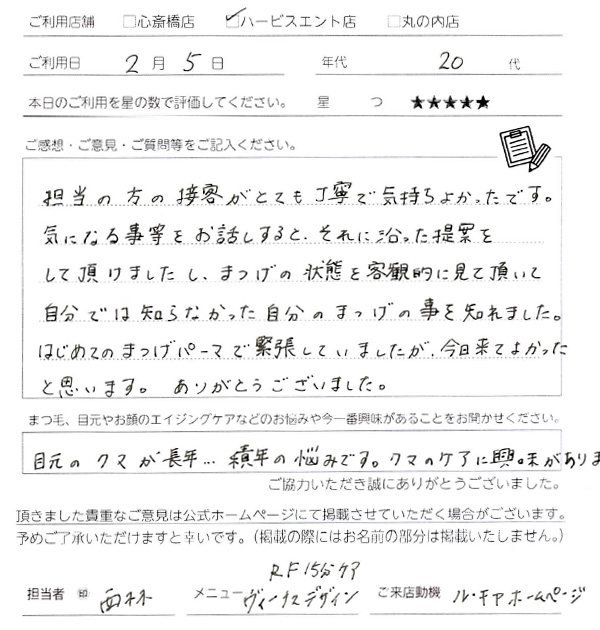 ご利用店舗 □心斎橋店 ☑ハービスエント店 □丸の内店
ご利用日 2月5日 年代 20代
本日のご利用を星の数で評価してください。 星 つ ★★★★★
ご感想・ご意見・ご質問等をご記入ください。
担当の方の接客がとても丁寧で気持ちよかったです。
気になる事等をお話しすると、それに沿った提案を
して頂けましたし、まつげの状態を客観的に見て頂いて
自分では知らなかった自分のまつげの事を知れました。
はじめてのまつげパーマで緊張していましたが、今日来てよかった
と思います。 ありがとうございました。
まつ毛、目元やお顔のエイジングケアなどのお悩みや今一番興味があることをお聞かせください。
目元のクマが長年…積年の悩みです。クマのケアに興味がありま
ご協力いただき誠にありがとうございました。
頂きました貴重なご意見は公式ホームページにて掲載させていただく場合がございます。
予めご了承いただけますと幸いです。(掲載の際にはお名前の部分は掲載いたしません。)
RF15分ケア
担当者 ㊞ メニュー ヴィーナスデザイン ご来店動機 ル・キアホームページ